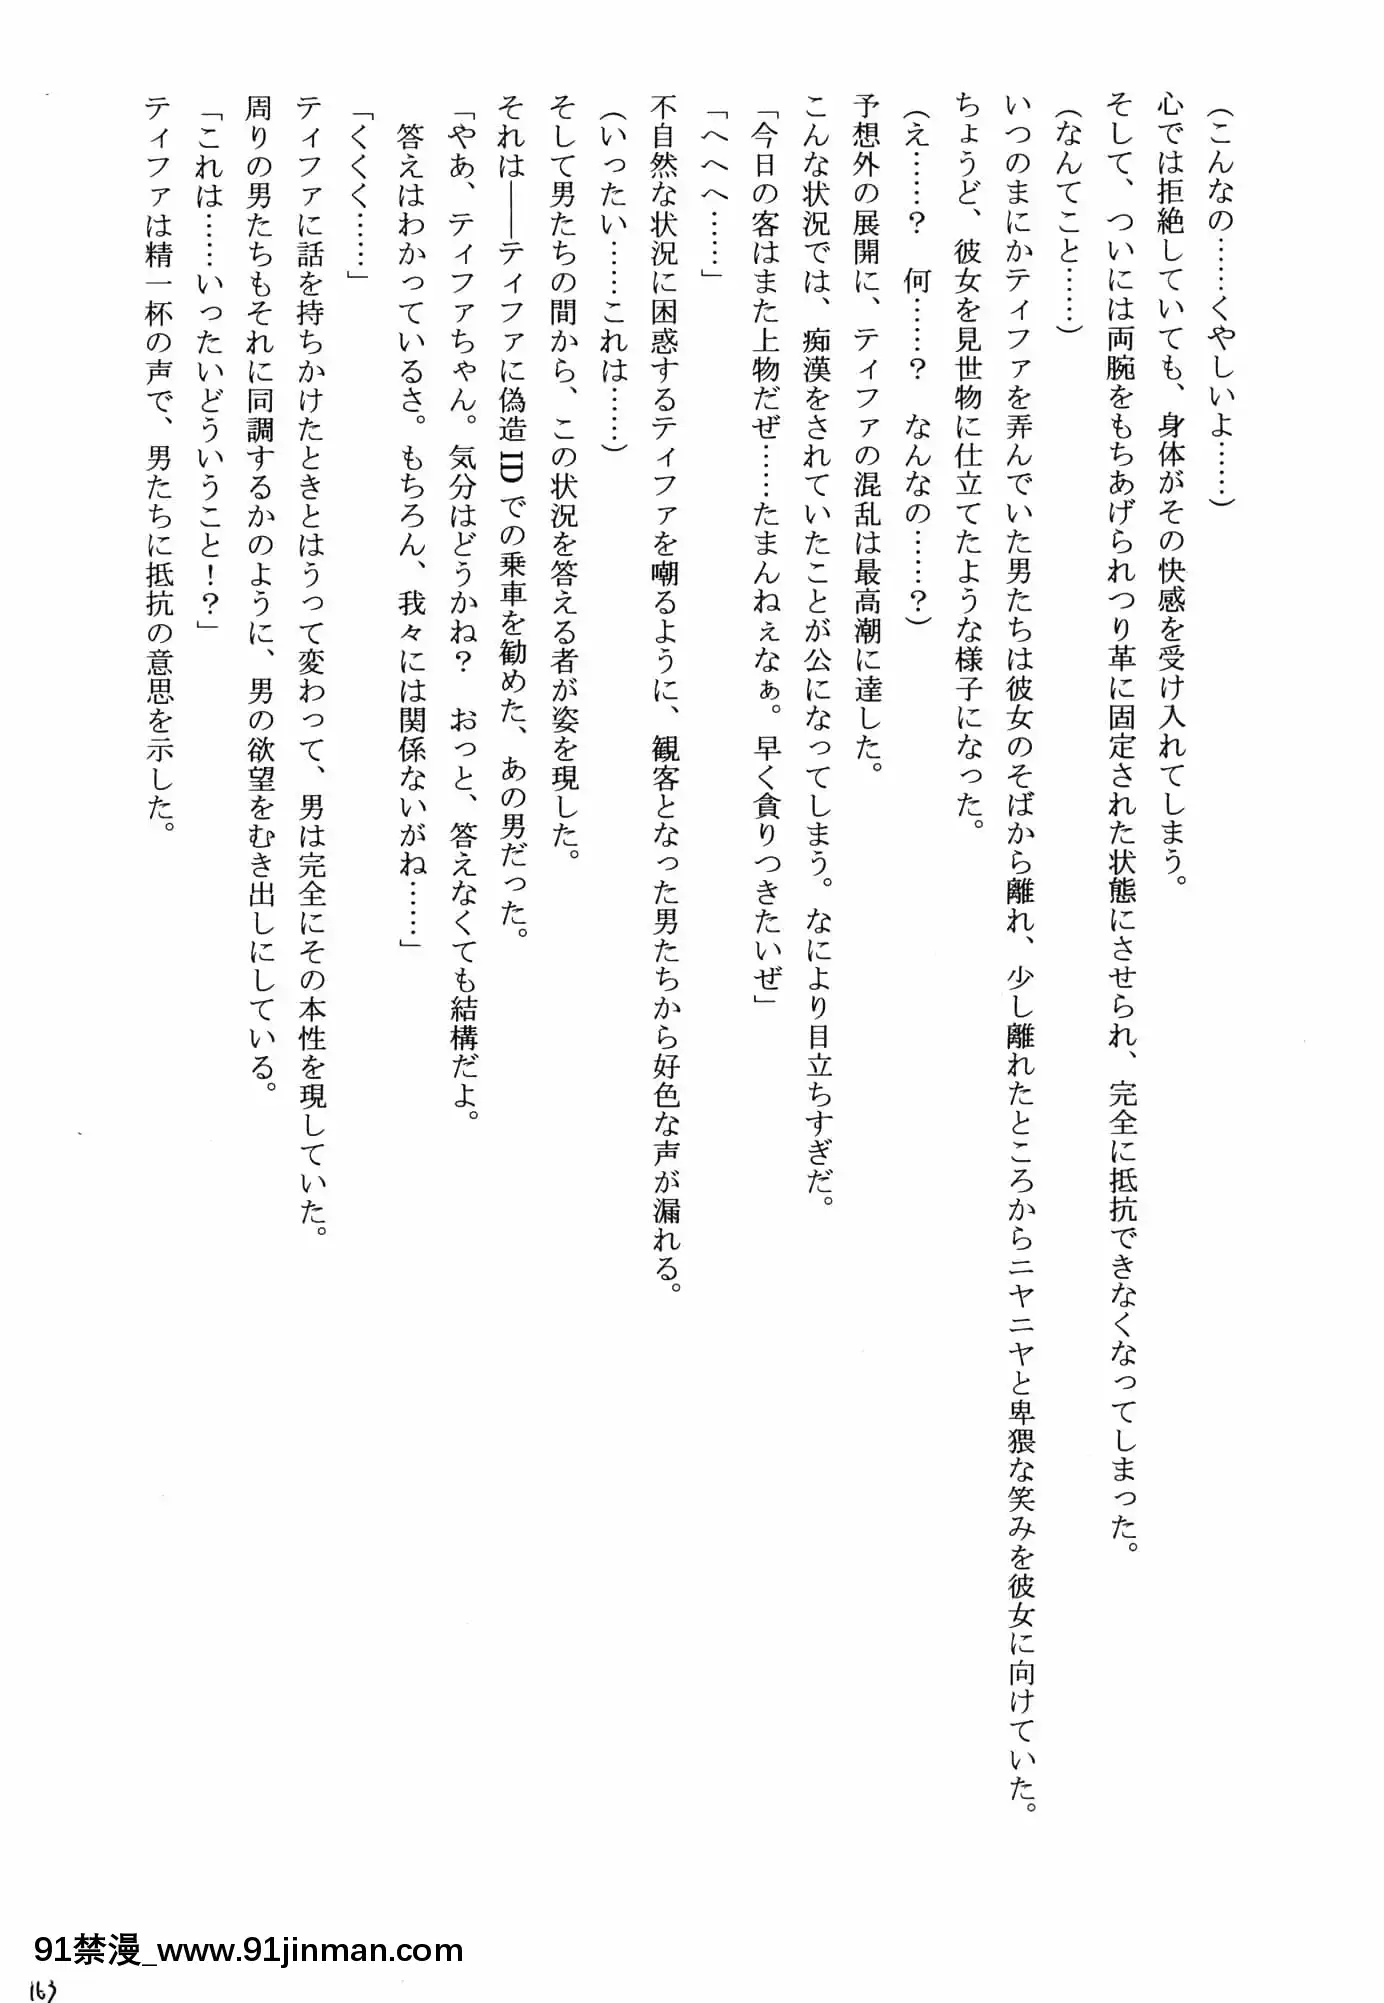 (こんなの……くやしいよ……)
心では拒絶していても、身体がその快感を受け入れてしまう。
そして、ついには両腕をもちあげられつり革に固定された状態にさせられ、完全に抵抗できなくなってしまった。
(なんてこと……)
いつのまにかティファを弄んでいた男たちは彼女のそばから離れ、少し離れたところからニヤニヤと卑猥な笑みを彼女に向けていた。
ちょうど、彼女を見世物に仕立てたような様子になった。
(え……？　何……？　なんなの……？)
予想外の展開に、ティファの混乱は最高潮に達した。
こんな状況では、痴漢をされていたことが公になってしまう。なにより目立ちすぎだ。
「今日の客はまた上物だぜ……たまんねぇなぁ。早く貪りつきたいぜ」
「へへへ……」
不自然な状況に困惑するティファを嘲るように、観客となった男たちから好色な声が漏れる。
(いったい……これは……)
そして男たちの間から、この状況を答える者が姿を現した。
それは――ティファに偽造IDでの乗車を勧めた、あの男だった。
「やあ、ティファちゃん。気分はどうかね？　おっと、答えなくても結構だよ。
　答えはわかっているさ。もちろん、我々には関係ないがね……」
「くくく……」
ティファに話を持ちかけたときとはうって変わって、男は完全にその本性を現していた。
周りの男たちもそれに同調するかのように、男の欲望をむき出しにしている。
「これは……いったいどういうこと！？」
ティファは精一杯の声で、男たちに抵抗の意思を示した。
91禁漫_www.91jinman.com
163